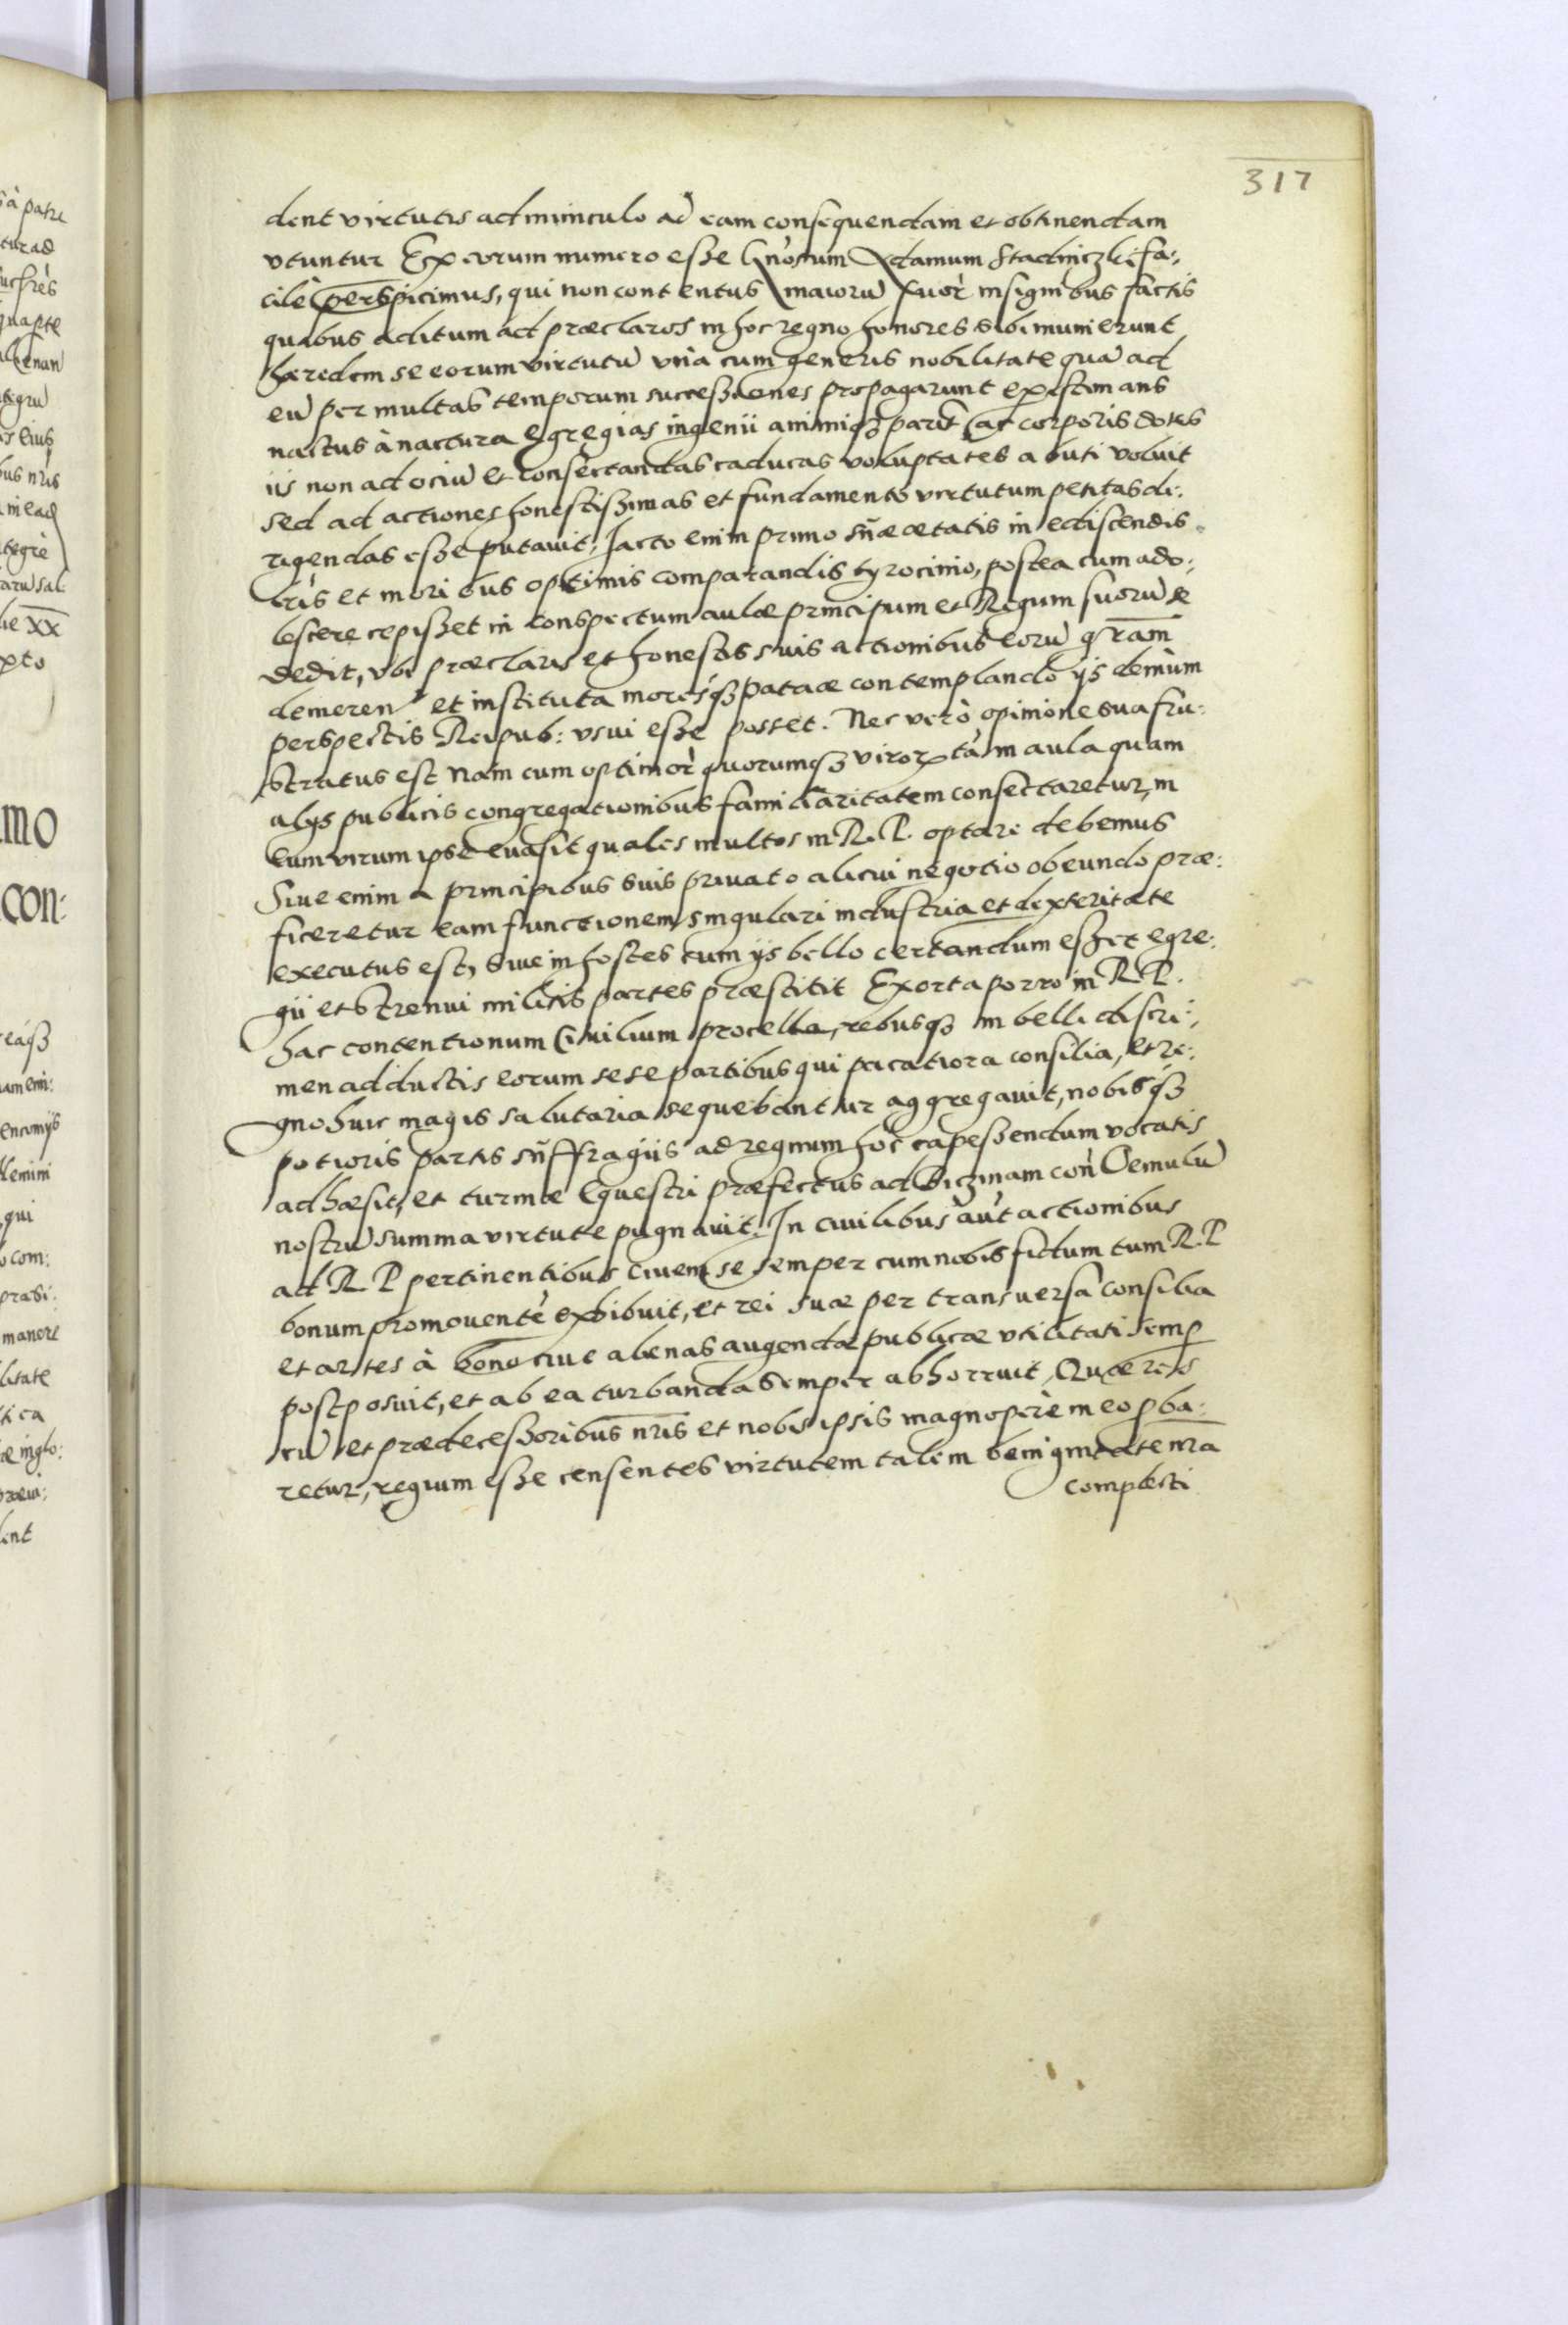 317
dent virtutis adminiculo ad eam consequendam et obtinendam
vtuntur Ex eorum numero esse Gnosum Adamum Stadniczki fa:
cilè perspicimus, qui non contentus maioru suor insignibus factis
quibus aditum ad præclaros in hoc regno honores sibi munierunt
hæredem se eorum virtutu vnà cum generis nobilitate quà ad
eu per multas temporum successiones propagarunt existimans
nactus à natura egregias ingenii animiq parit ac corporis dotes
iis non ad ociu et consectandas caducas voluptates abuti voluit
sed ad actiones honestissimas et fundamento virtutum petitas di:
rigendas esse putauit, Iacto enim primo suæ ætatis in ediscendis
lris et moribus optimis comparandis tyrocinio, postea cum ado:
lescere cepisset in conspectum aulæ principum et Regum suoru se
dedit, vbi præclaris et honestis suis actionibus eoru gram
demeren et instituta moresq patriæ contemplando ijs demum
perspectis Reipub: vsui esse posset. Nec verò opinione sua fru:
stratus est Nam cum optimor quorumq viror tàm in aula quam
alijs publicis congregationibus familiaritatem consectaretur, in
eum virum ipse euasit quales multos in R. P. optare debemus
Siue enim a principibus suis priuato alicui negotio obeundo præ:
ficeretur eam functionem singulari industria et dexteritate
executus est, siue in hostes cum ijs bello certandum esset egre:
gii et strenui militis partes præstitit Exorta porro in R. P.
hac contentionum Ciuilium procella, rebusq in belli discri:
men adductis eorum sese partibus qui pacatiora consilia, et re:
gno huic magis salutaria sequebantur aggregauit, nobisq
potioris partis suffragiis ad regnum hoc capessendum vocatis
adhæsit, et turmæ Equestri præfectus ad Biczinam con Aemulu
nostru summa virtute pugnauit. In ciuilibus aut actionibus
ad R. P pertinentibus Ciuem se semper cum nobis fidum tum R. P
bonum promouente exhibuit, et rei suæ per transuersa consilia
et artes à bono ciue alienas augendæ publicæ vtilitati semp
postposuit, et ab ea turbanda semper abhorruit, Quæ res
cu et prædecessoribus nris et nobis ipsis magnoperè in eo pba:
retur, regium esse censentes virtutem talem benignitate nra
complecti